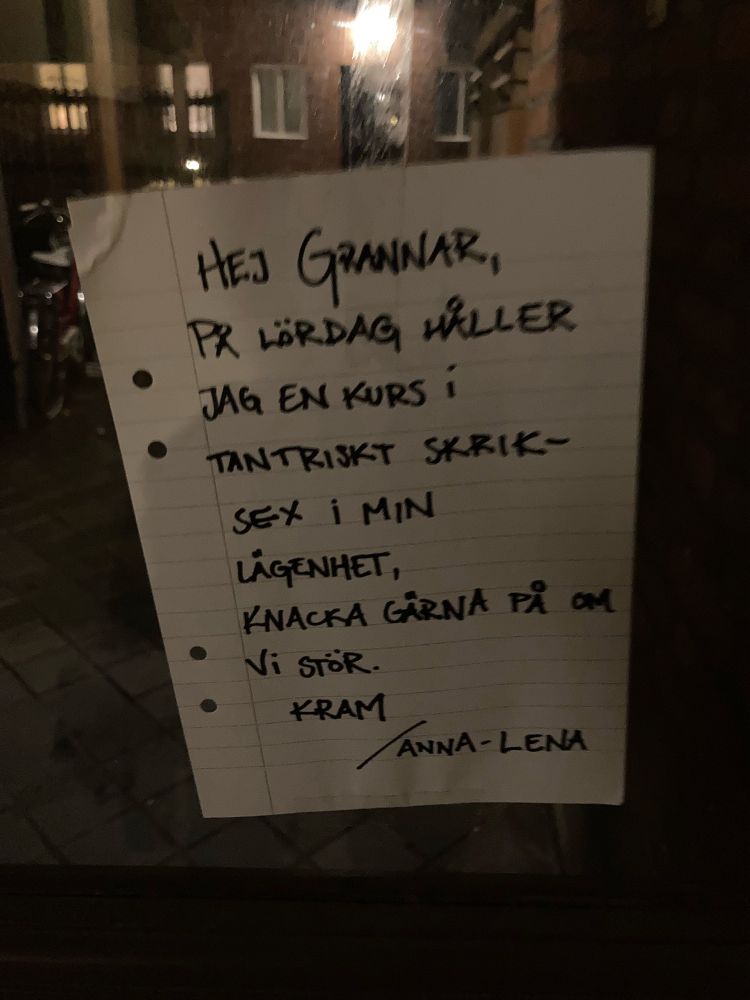 HEJ GRANNAR,
PÅ LÖRDAG HÅLLER
JAG EN KURS i
TANTRISKT SKRIK-
SEX i MIN
LÄGENHET,
KNACKA GÄRNA PÅ OM
Vi STÖR.
KRAM
/ANNA-LENA